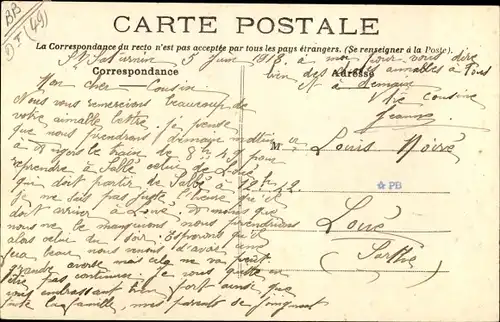 BB
DI (49)
CARTE POSTALE
La Correspondance du recto n'est pas acceptée par tous les pays étrangers. (Se renseigner à la Poste).
Correspondance
Adresse
St Saturnin 5 Juin 1913
à moi pour vous dire
bien des choses aimables à tous
et à demain
Votre cousine
Jeanne
Mon cher Cousin
Nous vous remercions beaucoup de
votre aimable lettre. Je pense
que nous prendrons demain matin
à Angers le train de 8h 49 pour
reprendre à Sablé celui de Loué
qui doit partir de Sablé à 10h 22
je ne sais pas juste l'heure qu'il
doit arriver à Loué, à moins que
nous ne le manquions nous prendrions
alors celui du soir. Espérons qu'il
fera beau nous venons d'avoir une
averse mais cela ne va peut
être pas continuer. Je vous quitte en
vous embrassant bien fort ainsi que
toute la famille, mes parents se joignent
M Louis Noiré
PB
Loué
(Sarthe)